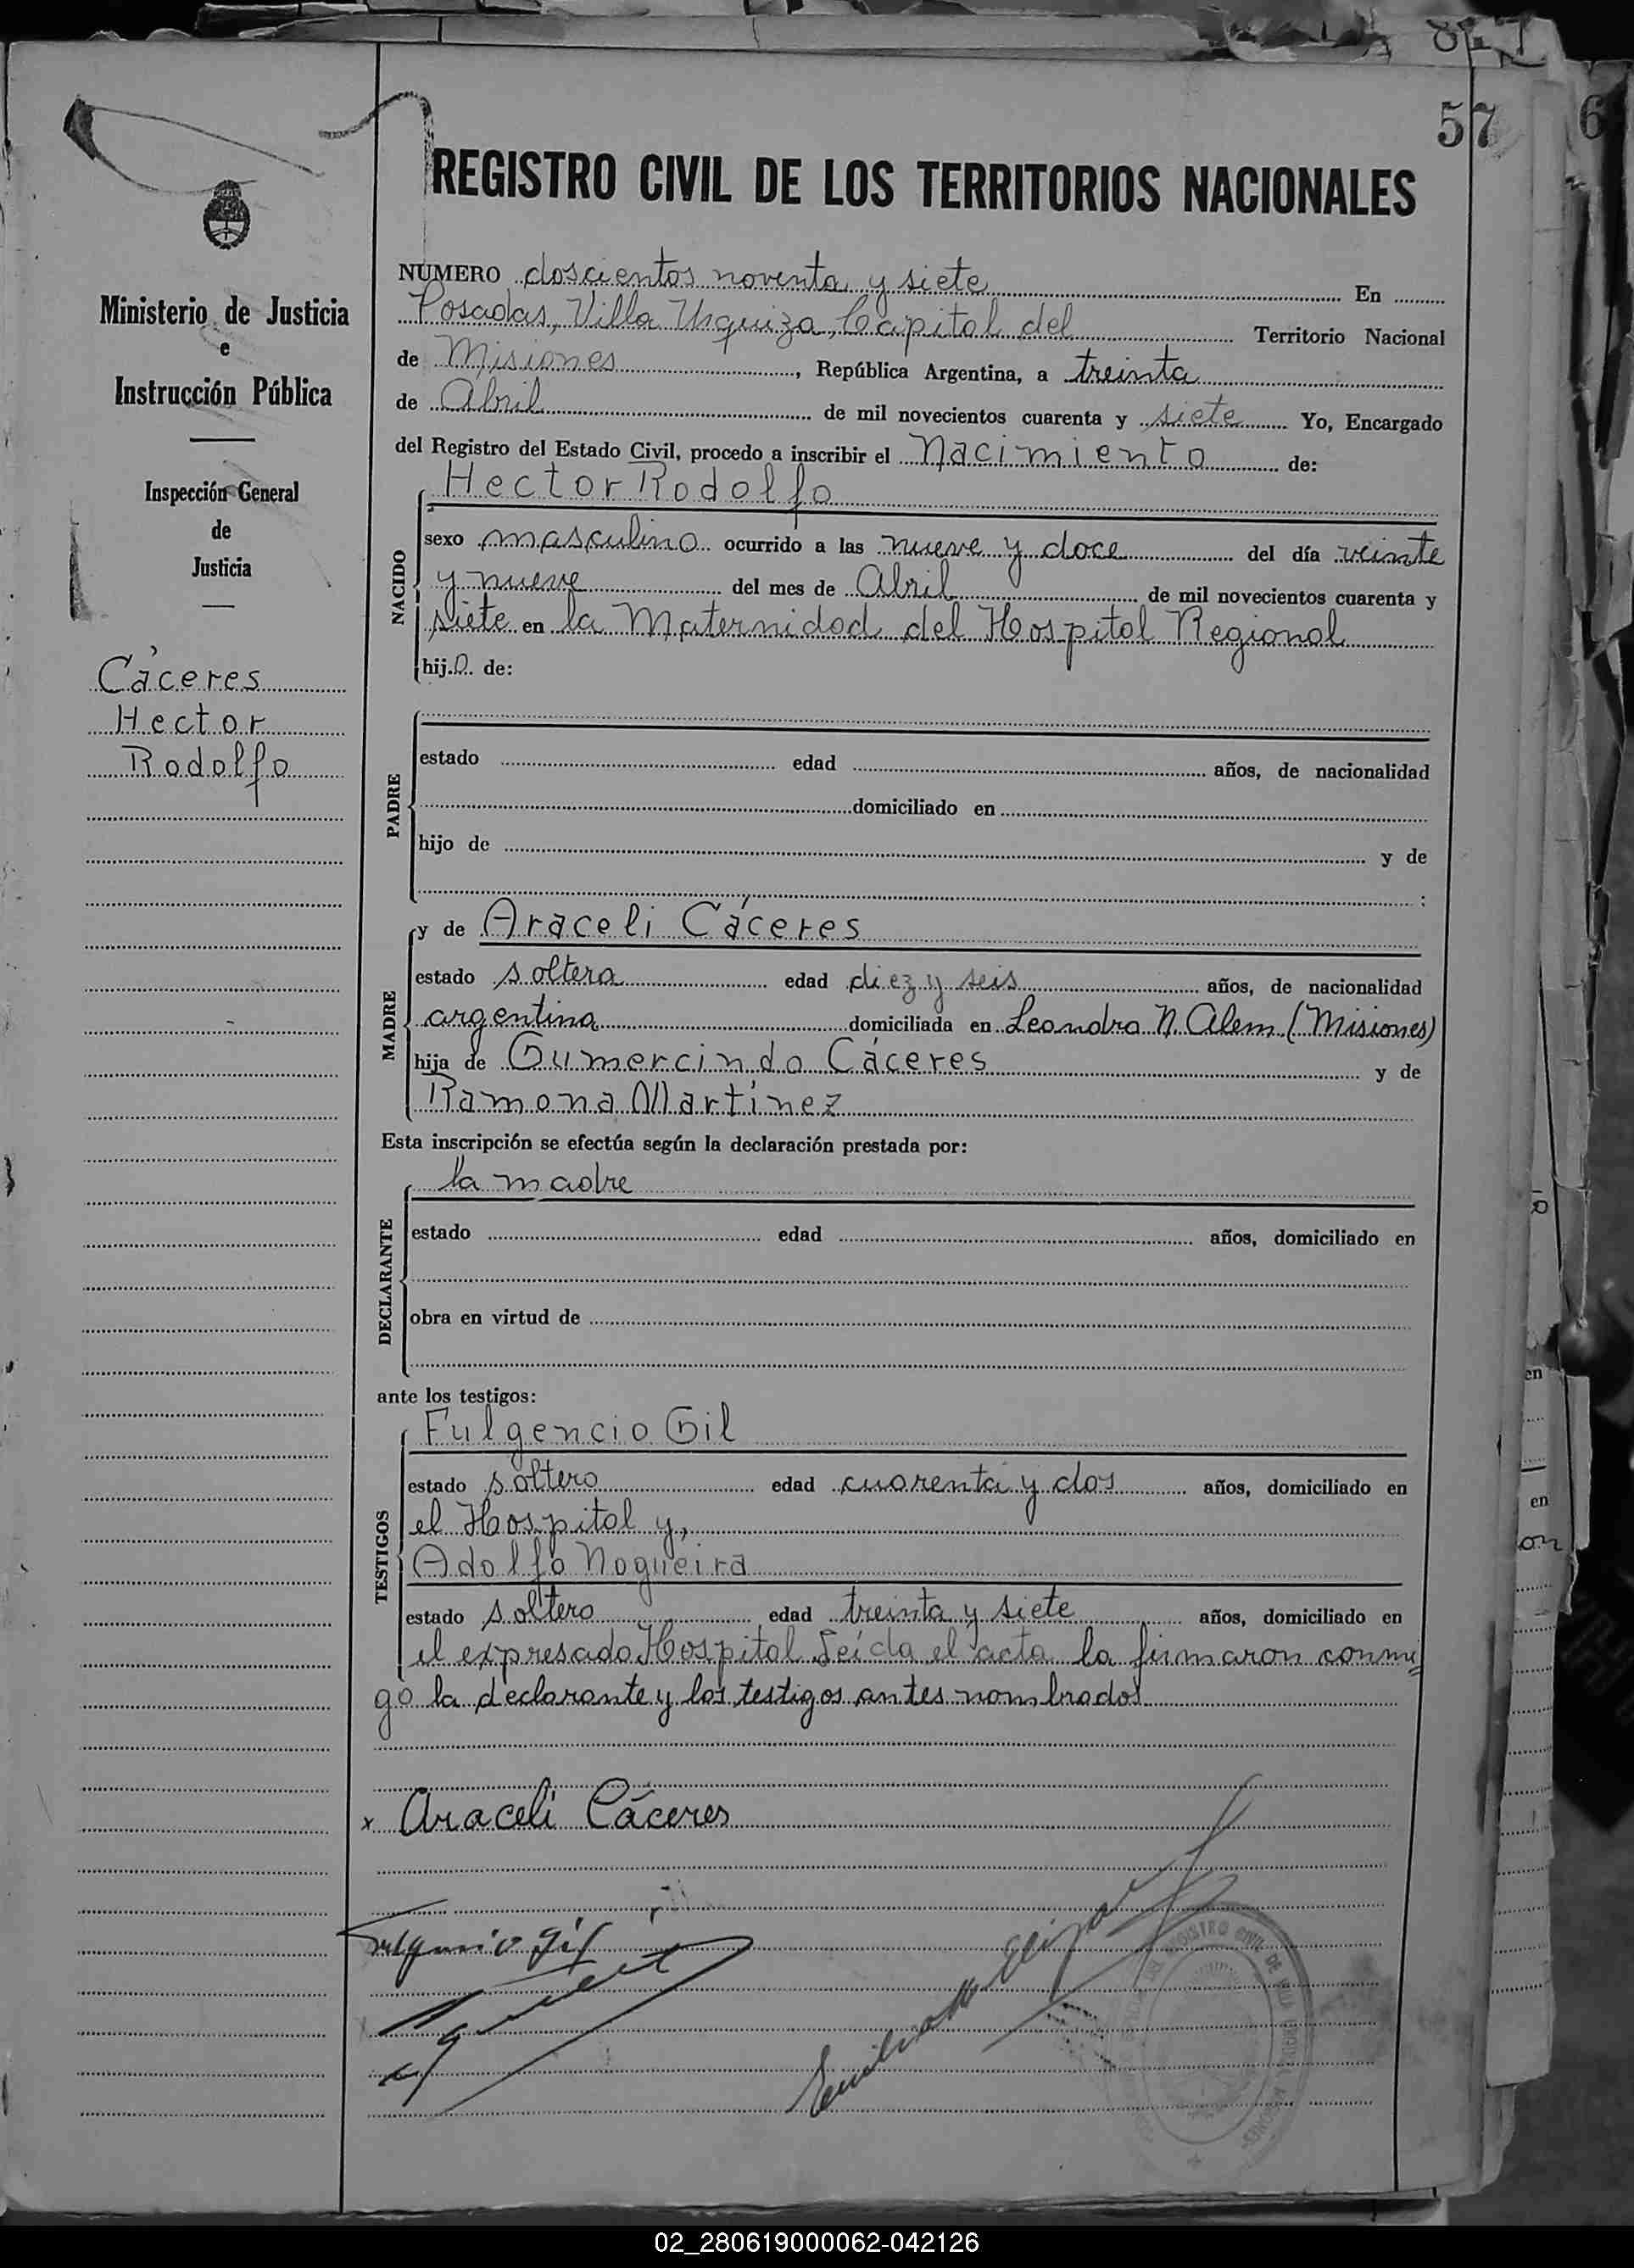 57
REGISTRO CIVIL DE LOS TERRITORIOS NACIONALES
Ministerio de Justicia
e
Instrucción Pública
Inspección General
de
Justicia
Cáceres
Hector
Rodolfo
NUMERO doscientos noventa y siete En
Posadas, Villa Urquiza, Capital del Territorio Nacional
de Misiones, República Argentina, a treinta
de Abril de mil novecientos cuarenta y siete Yo, Encargado
del Registro del Estado Civil, procedo a inscribir el Nacimiento de:
NACIDO
Hector Rodolfo
sexo masculino ocurrido a las nueve y doce del día veinte
y nueve del mes de Abril de mil novecientos cuarenta y
siete en la Maternidad del Hospital Regional
hijo de:
PADRE
estado edad años, de nacionalidad
domiciliado en
hijo de y de
:
MADRE
y de Araceli Cáceres
estado soltera edad diez y seis años, de nacionalidad
argentina domiciliada en Leandro N. Alem (Misiones)
hija de Gumercindo Cáceres y de
Ramona Martínez
Esta inscripción se efectúa según la declaración prestada por:
DECLARANTE
la madre
estado edad años, domiciliado en
obra en virtud de
ante los testigos:
TESTIGOS
Fulgencio Gil
estado soltero edad cuarenta y dos años, domiciliado en
el Hospital y,
Adolfo Nogueira
estado soltero edad treinta y siete años, domiciliado en
el expresado Hospital. Leída el acta la firmaron conmi=
go la declarante y los testigos antes nombrados
x Araceli Cáceres
Fulgencio Gil
REGISTRO CIVIL DE VILLA
02_280619000062-042126